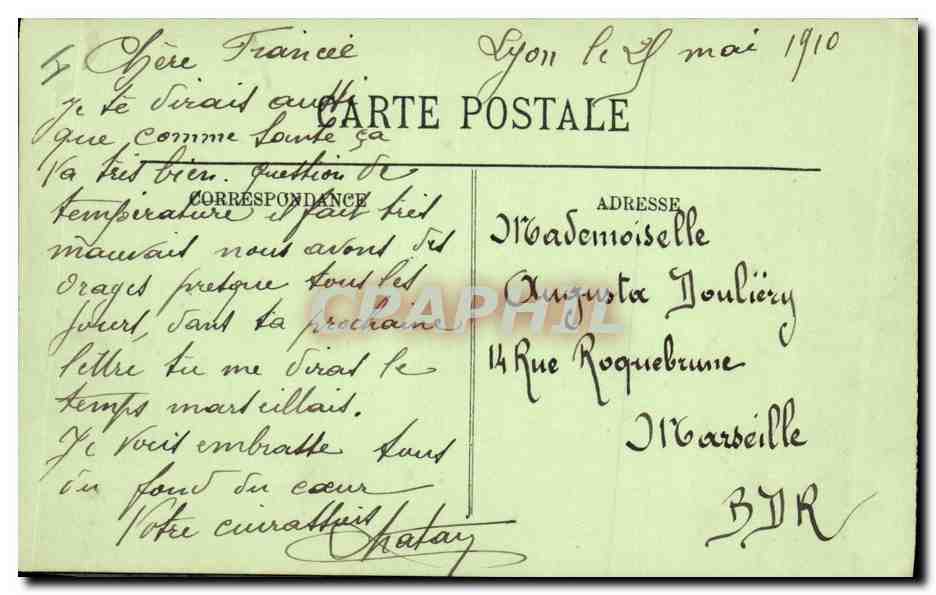 4 Chère Fiancée Lyon le 25 mai 1910
Je te dirais aussi
CARTE POSTALE
que comme santé ça
va très bien. question de
CORRESPONDANCE
température il fait très
mauvais nous avons des
orages presque tous les
jours, dans ta prochaine
lettre tu me diras le
temps marseillais.
Je vous embrasse tous
du fond du cœur
Votre cuirassier
Chatay
ADRESSE
Mademoiselle
Augusta Douliéry
14 Rue Roquebrune
Marseille
BDR
CPAPHIL